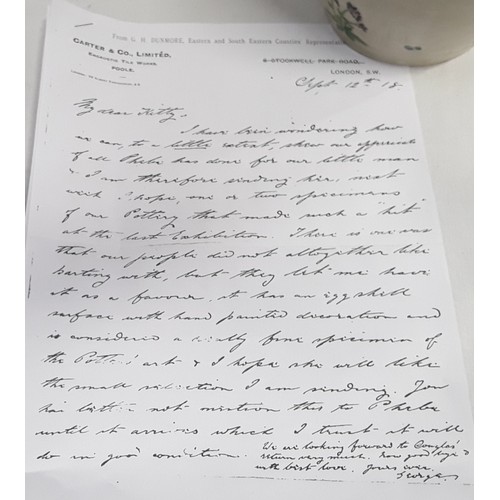 From L. H. DUNMORE, Eastern and South Eastern Counties Representative
CARTER & CO., LIMITED,
ENCAUSTIC TILE WORKS,
POOLE.
6 STOCKWELL PARK ROAD,
LONDON, S.W.
Sept 12th 18
My dear Kitty,
I have been wondering how
we can, to a little extent, show our appreciation
of all Phebe has done for our little man
& I am therefore sending her, next
week I hope, one or two specimens
of our Pottery that made such a "hit"
at the last Exhibition. There is one vase
that our people did not altogether like
parting with, but they let me have
it as a favour, it has an eggshell
surface with hand painted decoration and
is considered a really fine specimen of
the Potters art & I hope she will like
the small selection I am sending. You
had better not mention this to Phebe
until it arrives which I trust it will
do in good condition. We are looking forward to Douglas'
return very much. Now good bye &
with best love. Yours ever,
George